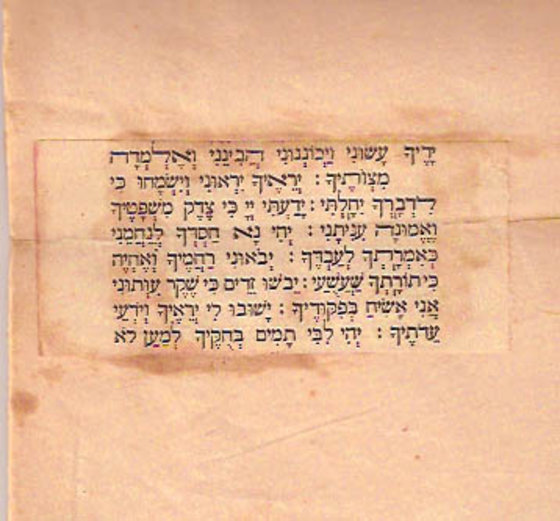 יָדֶיךָ עָשׂוּנִי וַיְכוֹנְנוּנִי הֲבִינֵנִי וְאֶלְמְדָה
מִצְוֹתֶיךָ : יְרֵאֶיךָ יִרְאוּנִי וְיִשְׂמָחוּ כִּי
לִדְבָרְךָ יִחָלְתִּי : יָדַעְתִּי יְיָ כִּי צֶדֶק מִשְׁפָּטֶיךָ
וֶאֱמוּנָה עִנִּיתָנִי : יְהִי נָא חַסְדְּךָ לְנַחֲמֵנִי
כְּאִמְרָתְךָ לְעַבְדֶּךָ : יְבֹאוּנִי רַחֲמֶיךָ וְאֶחְיֶה
כִּי תוֹרָתְךָ שַׁעֲשֻׁעָי : יֵבֹשׁוּ זֵדִים כִּי שֶׁקֶר עִוְּתוּנִי
אֲנִי אָשִׂיחַ בְּפִקּוּדֶיךָ : יָשׁוּבוּ לִי יְרֵאֶיךָ וְיֹדְעֵי
עֵדֹתֶיךָ : יְהִי לִבִּי תָמִים בְּחֻקֶּיךָ לְמַעַן לֹא